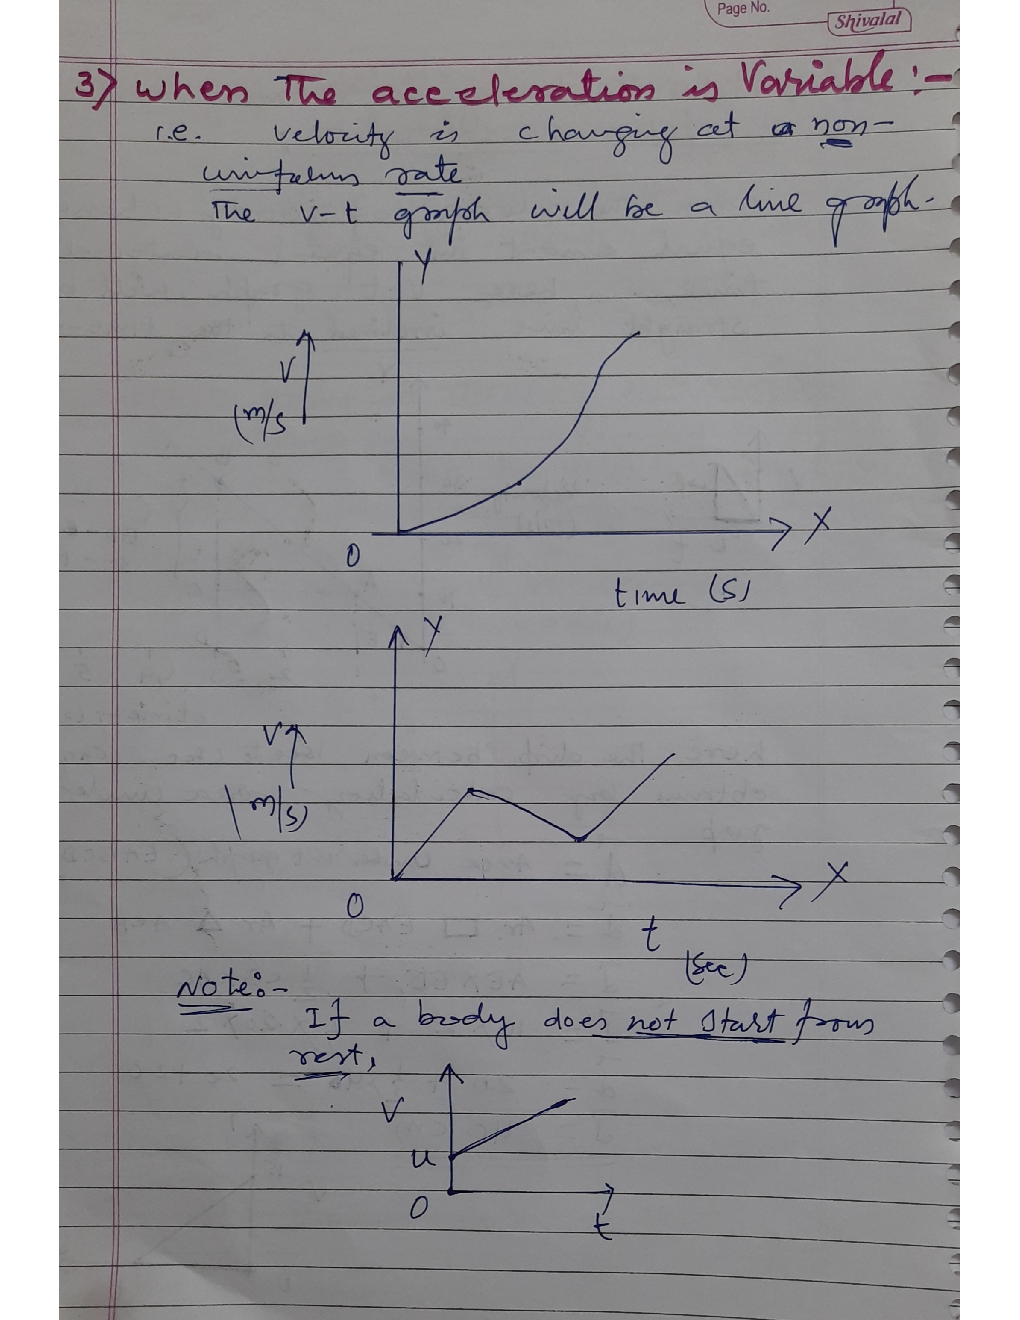 Page No.
Shivalal
3) When The acceleration is Variable :-
i.e. velocity is changing at a non-
uniform rate
The v-t graph will be a line graph.
Y
V
(m/s
X
0
time (s)
Y
V
(m/s)
X
0
t
(sec)
Note:-
If a body does not start from
rest,
V
u
0
t